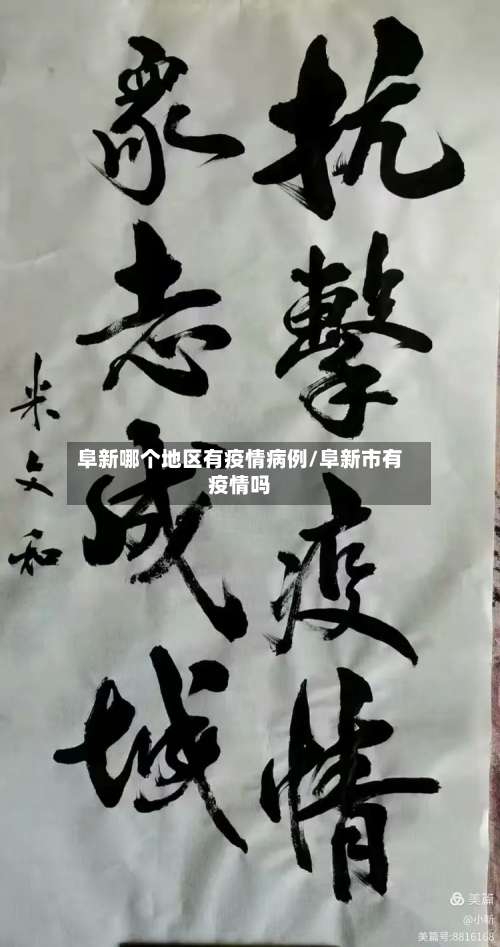 抗擊疫情
眾志成城
米文和
阜新哪个地区有疫情病例/阜新市有
疫情吗
美篇
@小昕
美篇号:8816168